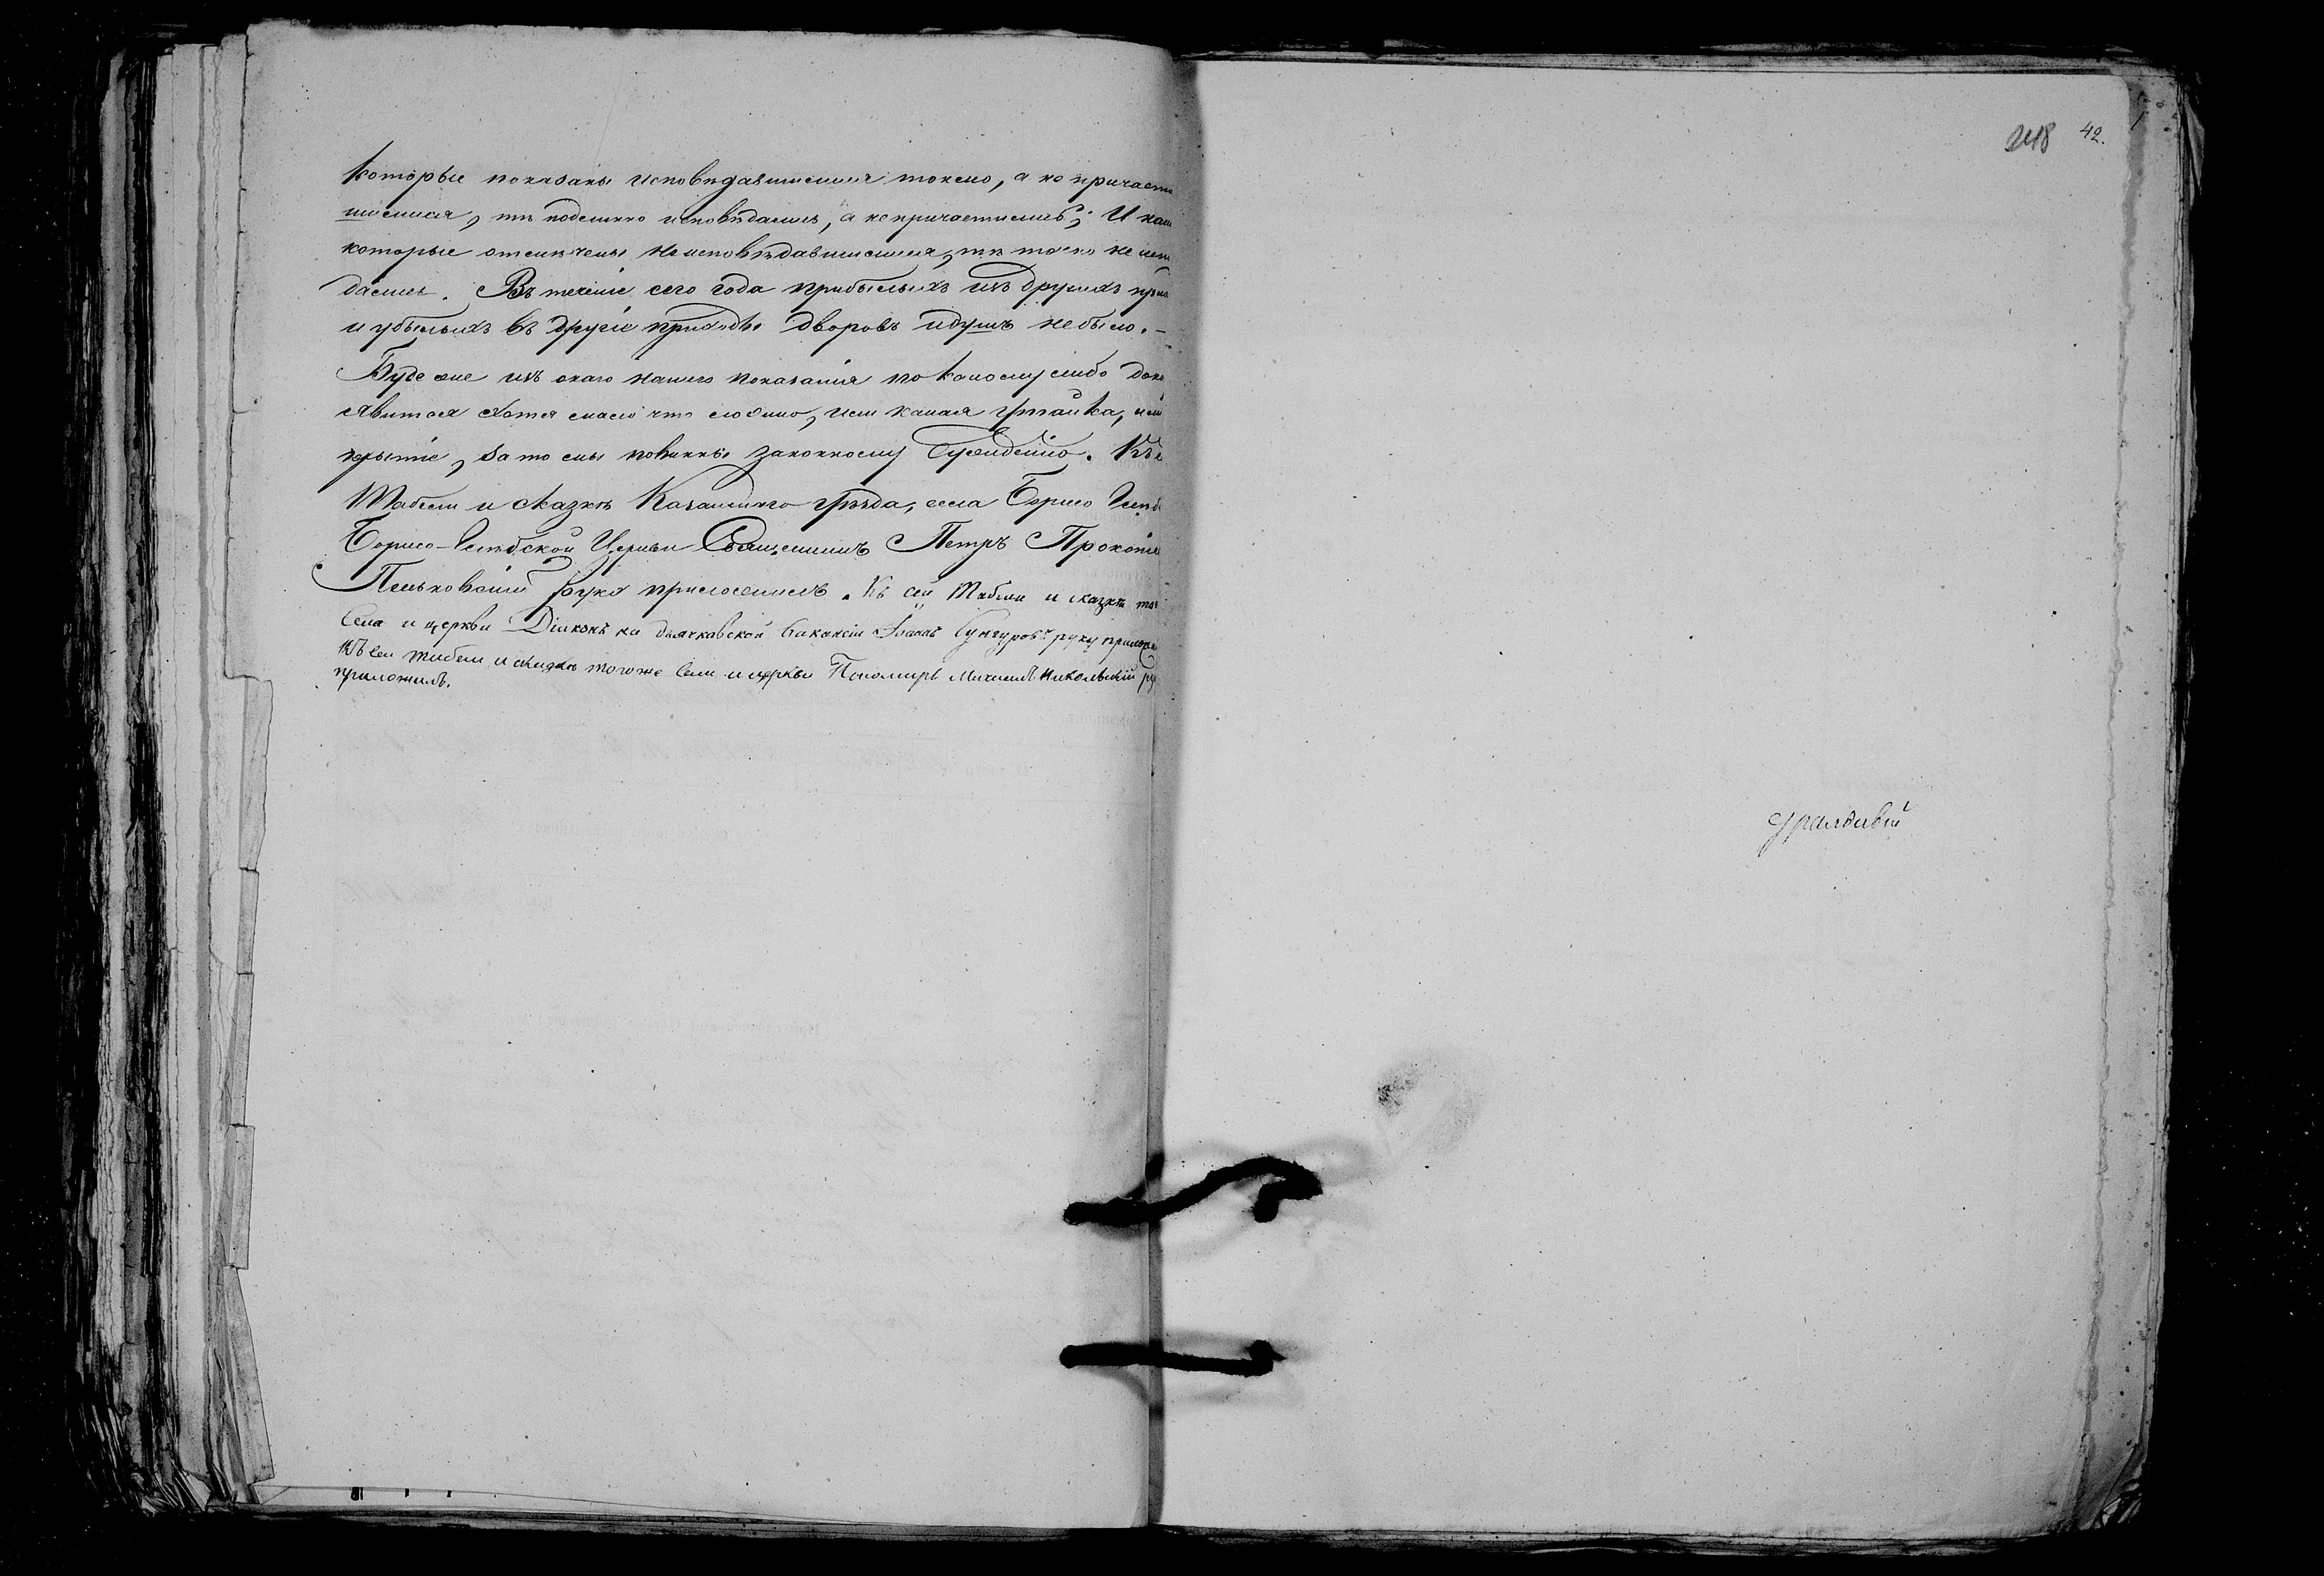 которые показаны исповѣдавшимися токмо, а не причасти
шимися, тѣ подлинно исповѣдались, а не причастились; И
которые отмѣчены неисповѣдавшимися, тѣ точно не испо
дались. Въ теченіе сего года прибылыхъ изъ другихъ при
и убылыхъ въ другіе приходы дворовъ идушъ небыло.-
Буде же изъ онаго нашего показанія по какому либо дон
явится хотя мало что ложно, или какая утайка, или
крытіе, за то мы повинны законному сужденію. Къ
Табели и сказкѣ Казанскаго уѣзда, села Борисо
Борисо-Глѣбской Церкви Священникъ Петръ Прокопіе
руку приложилъ. Къ сей Табели и сказкѣ то
Села и церкви Діаконъ на дьячковской вакансіи Іоаннъ руку прило
Къ сей табели и сказкѣ тогоже села и церкви Пономарь Михаилъ Никольскій ру
приложилъ.
248 42.